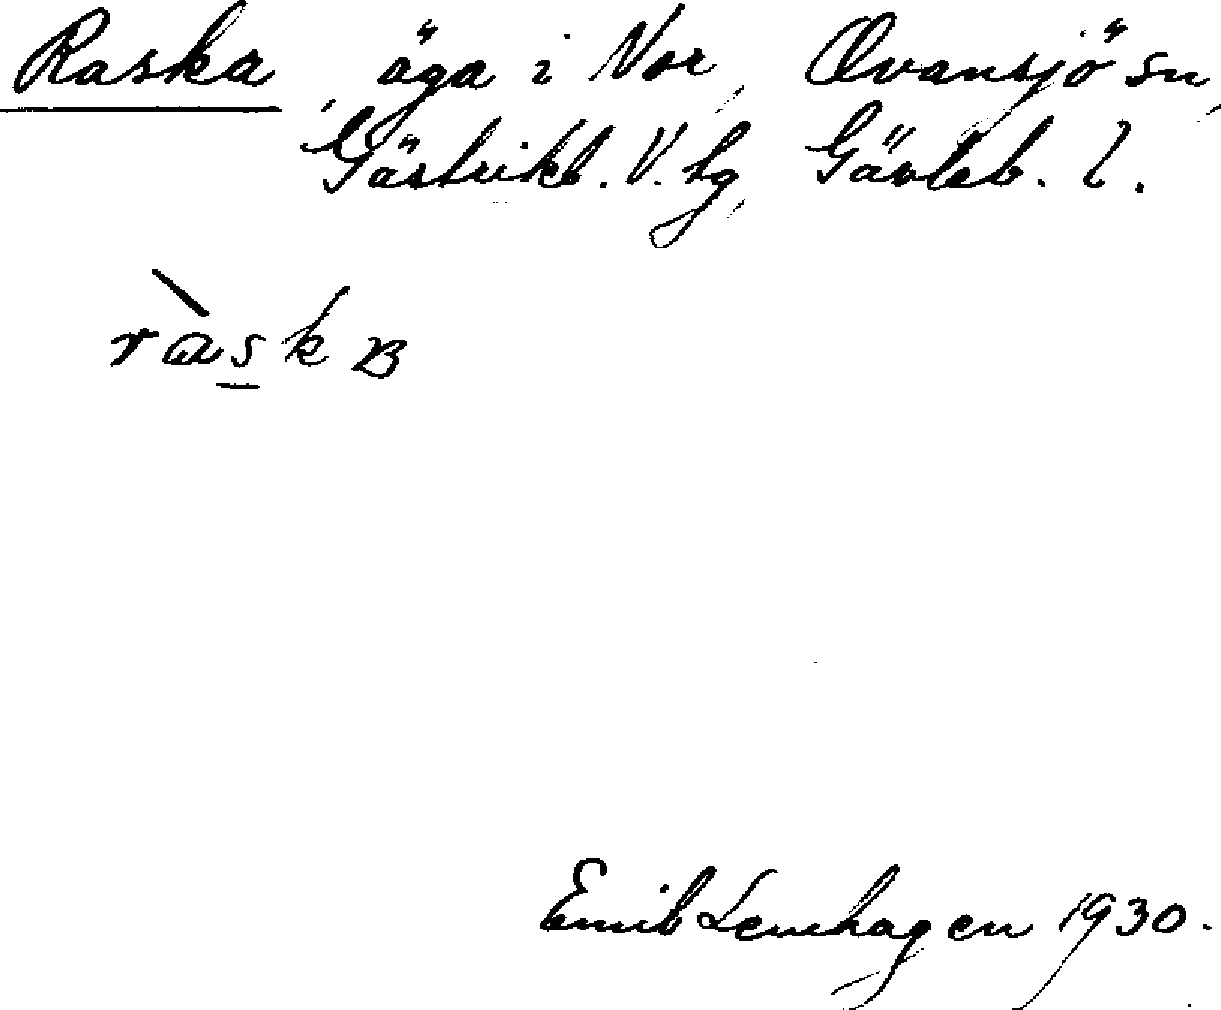 Raska, äga i Vor, Ovansjö sn,
Gästrikl. V. tg, Gävleb. l.
ràskɐ
Emil Lenhagen 1930.